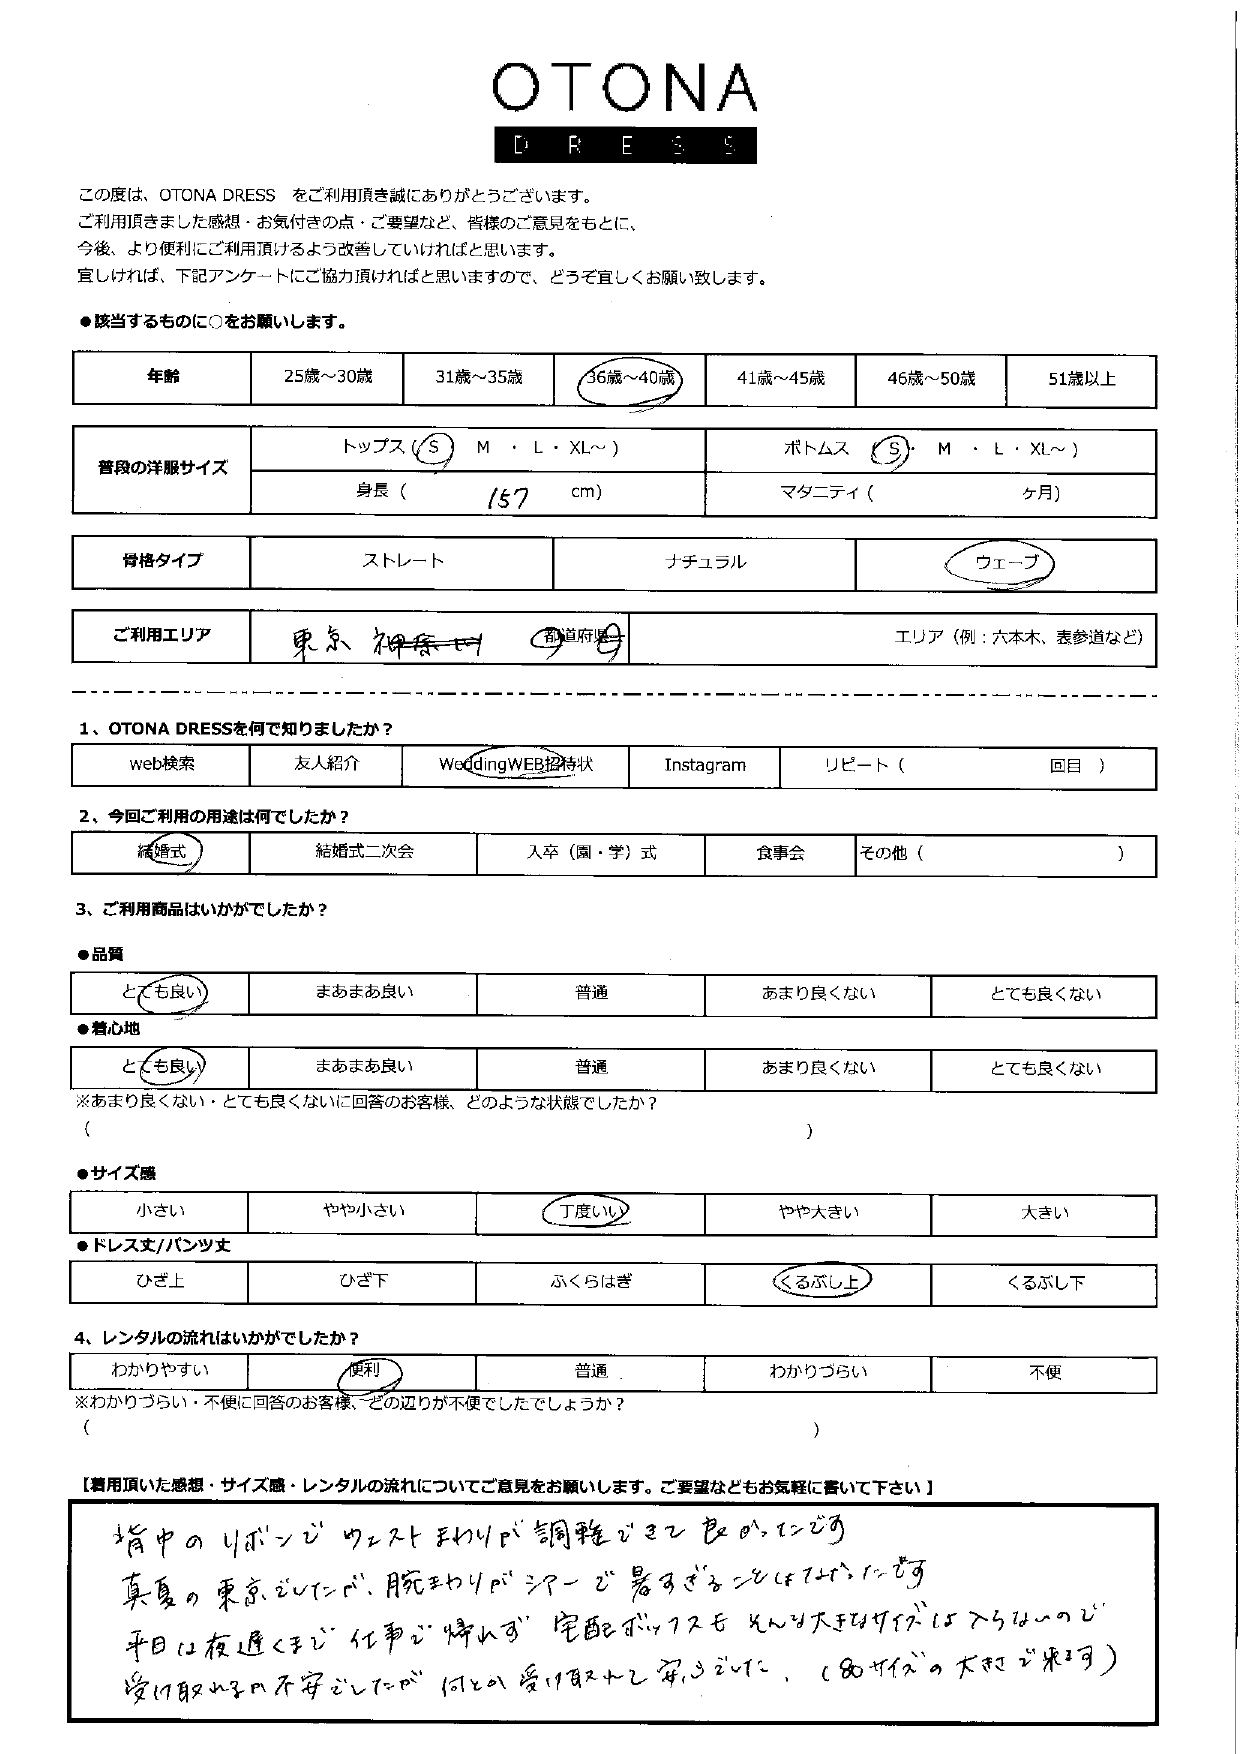 OTONA
DRESS
この度は、OTONA DRESS　をご利用頂き誠にありがとうございます。
ご利用頂きました感想・お気付きの点・ご要望など、皆様のご意見をもとに、
今後、より便利にご利用頂けるよう改善していければと思います。
宜しければ、下記アンケートにご協力頂ければと思いますので、どうぞ宜しくお願い致します。
●該当するものに○をお願いします。
年齢 25歳～30歳 31歳～35歳 36歳～40歳 41歳～45歳 46歳～50歳 51歳以上
普段の洋服サイズ
トップス ( S M ・ L ・ XL～ ) ボトムス ( S ・ M ・ L ・ XL～ )
身長 ( 157 cm) マタニティ ( ヶ月)
骨格タイプ ストレート ナチュラル ウェーブ
ご利用エリア 東京 神奈川 都道府県 エリア（例：六本木、表参道など）
1、OTONA DRESSを何で知りましたか？
web検索 友人紹介 WeddingWEB招待状 Instagram リピート（ 回目 ）
2、今回ご利用の用途は何でしたか？
結婚式 結婚式二次会 入卒（園・学）式 食事会 その他（ ）
3、ご利用商品はいかがでしたか？
●品質
とても良い まあまあ良い 普通 あまり良くない とても良くない
●着心地
とても良い まあまあ良い 普通 あまり良くない とても良くない
※あまり良くない・とても良くないに回答のお客様、どのような状態でしたか？
（ ）
●サイズ感
小さい やや小さい 丁度いい やや大きい 大きい
●ドレス丈/パンツ丈
ひざ上 ひざ下 ふくらはぎ くるぶし上 くるぶし下
4、レンタルの流れはいかがでしたか？
わかりやすい 便利 普通 わかりづらい 不便
※わかりづらい・不便に回答のお客様、どの辺りが不便でしたでしょうか？
（ ）
【着用頂いた感想・サイズ感・レンタルの流れについてご意見をお願いします。ご要望などもお気軽に書いて下さい 】
背中のリボンでウェストまわりが調整できて良かったです
真夏の東京でしたが、腕まわりがシアーで暑すぎることはなかったです
平日は夜遅くまで仕事で帰れず宅配ボックスもそんな大きなサイズは入らないので
受け取れるか不安でしたが何とか受け取れて安心でした．（80サイズの大きさで来ます）